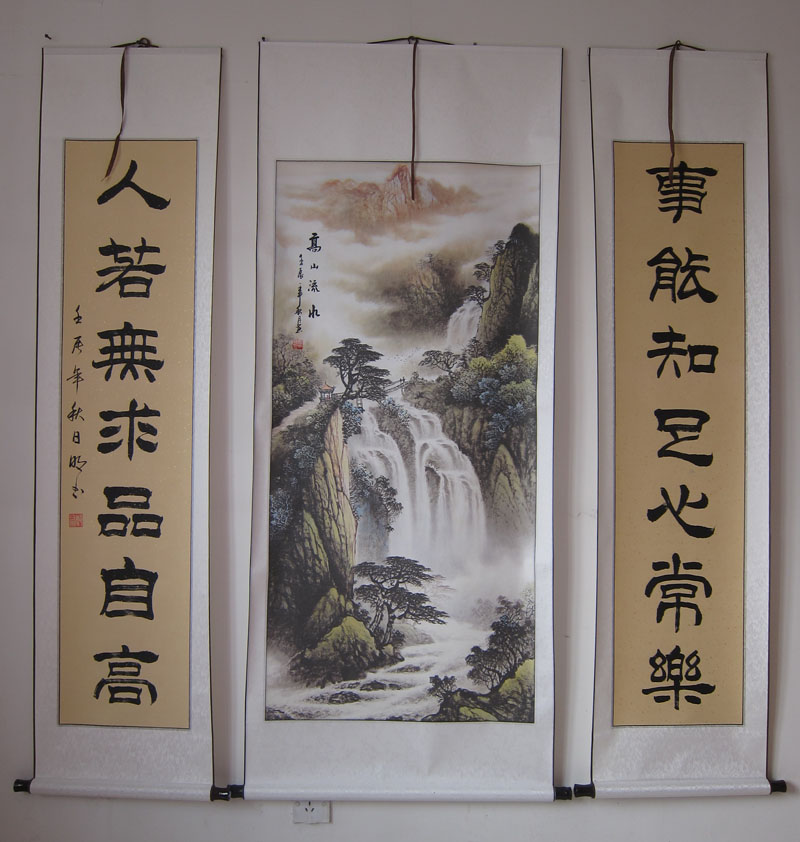 事能知足心常樂
高山流水
壬辰年秋月
人若無求品自高
壬辰年秋日明书